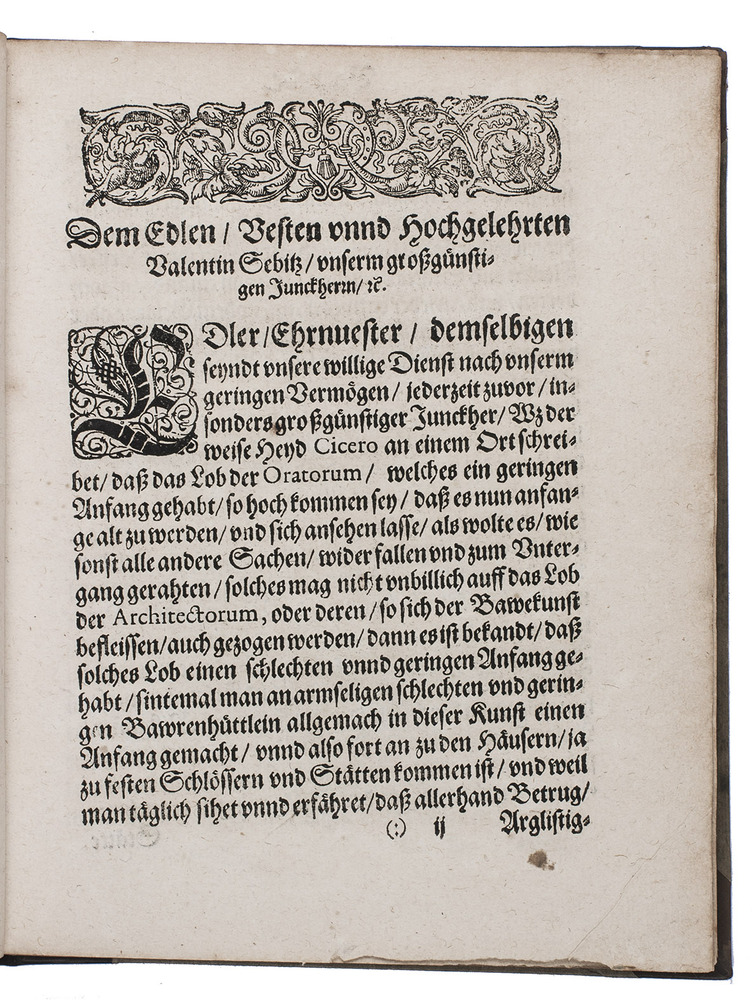 Dem Edlen / Vesten vnnd Hochgelehrten
Valentin Sebitz / vnserm großgünsti-
gen Junckherrn / ꝛc.
EDler / Ehrnuester / demselbigen
seyndt vnsere willige Dienst nach vnserm
geringen Vermögen / jederzeit zuvor / in-
sonders großgünstiger Junckher / Wz der
weise Heyd Cicero an einem Ort schrei-
bet / daß das Lob der Oratorum / welches ein geringen
Anfang gehabt / so hoch kommen sey / daß es nun anfan-
ge alt zu werden / vnd sich ansehen lasse / als wolte es / wie
sonst alle andere Sachen / wider fallen vnd zum Vnter-
gang gerahten / solches mag nicht vnbillich auff das Lob
der Architectorum, oder deren / so sich der Bawekunst
befleissen / auch gezogen werden / dann es ist bekandt / daß
solches Lob einen schlechten vnnd geringen Anfang ge-
habt / sintemal man an armseligen schlechten vnd gerin-
gen Bawrenhüttlein allgemach in dieser Kunst einen
Anfang gemacht / vnnd also fort an zu den Häusern / ja
zu festen Schlössern vnd Stätten kommen ist / vnd weil
man täglich sihet vnnd erfähret / daß allerhand Betrug /
(:) ij Arglistig-